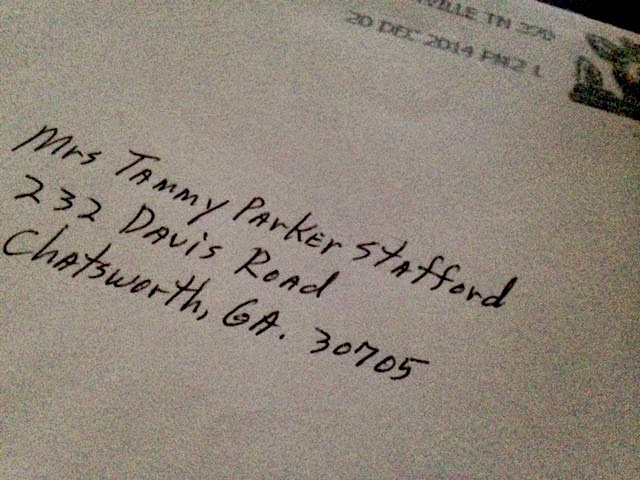 VILLE TN 370
20 DEC 2014 PM 2 L
Mrs Tammy Parker Stafford
232 Davis Road
Chatsworth, GA. 30705